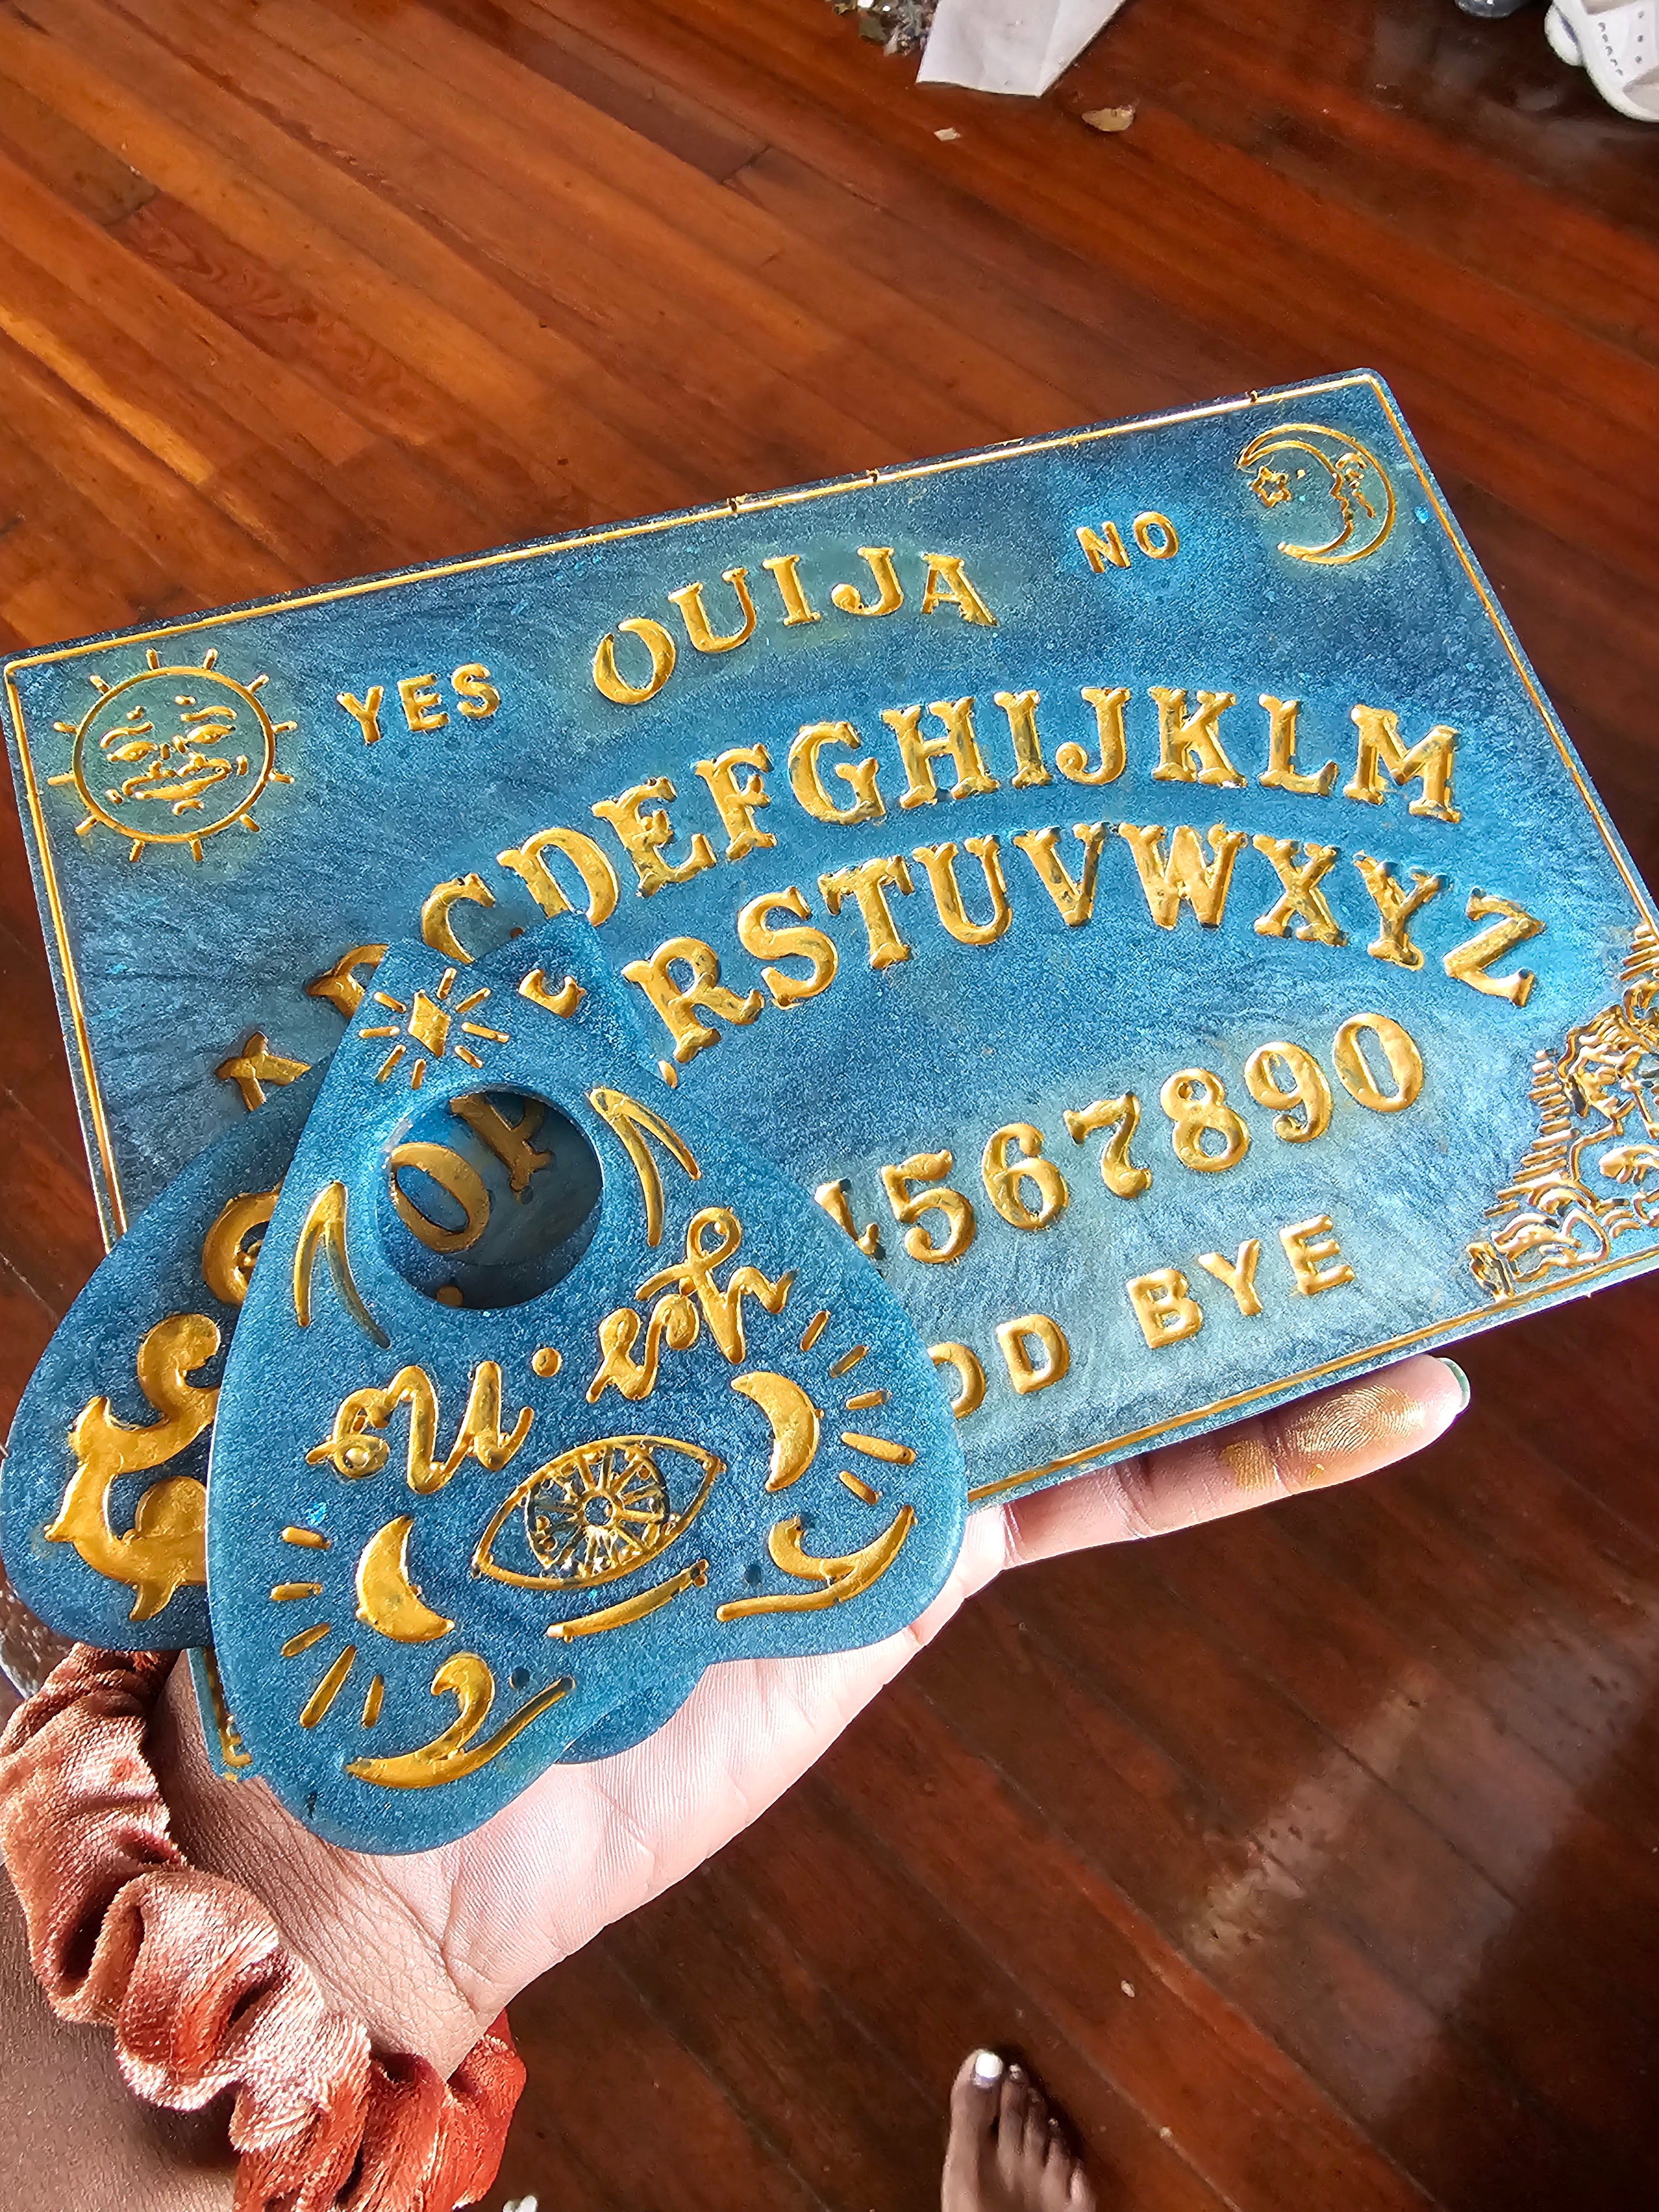 YES OUIJA NO
CDEFGHIJKLM
RSTUVWXYZ
567890
BYE
no . yes